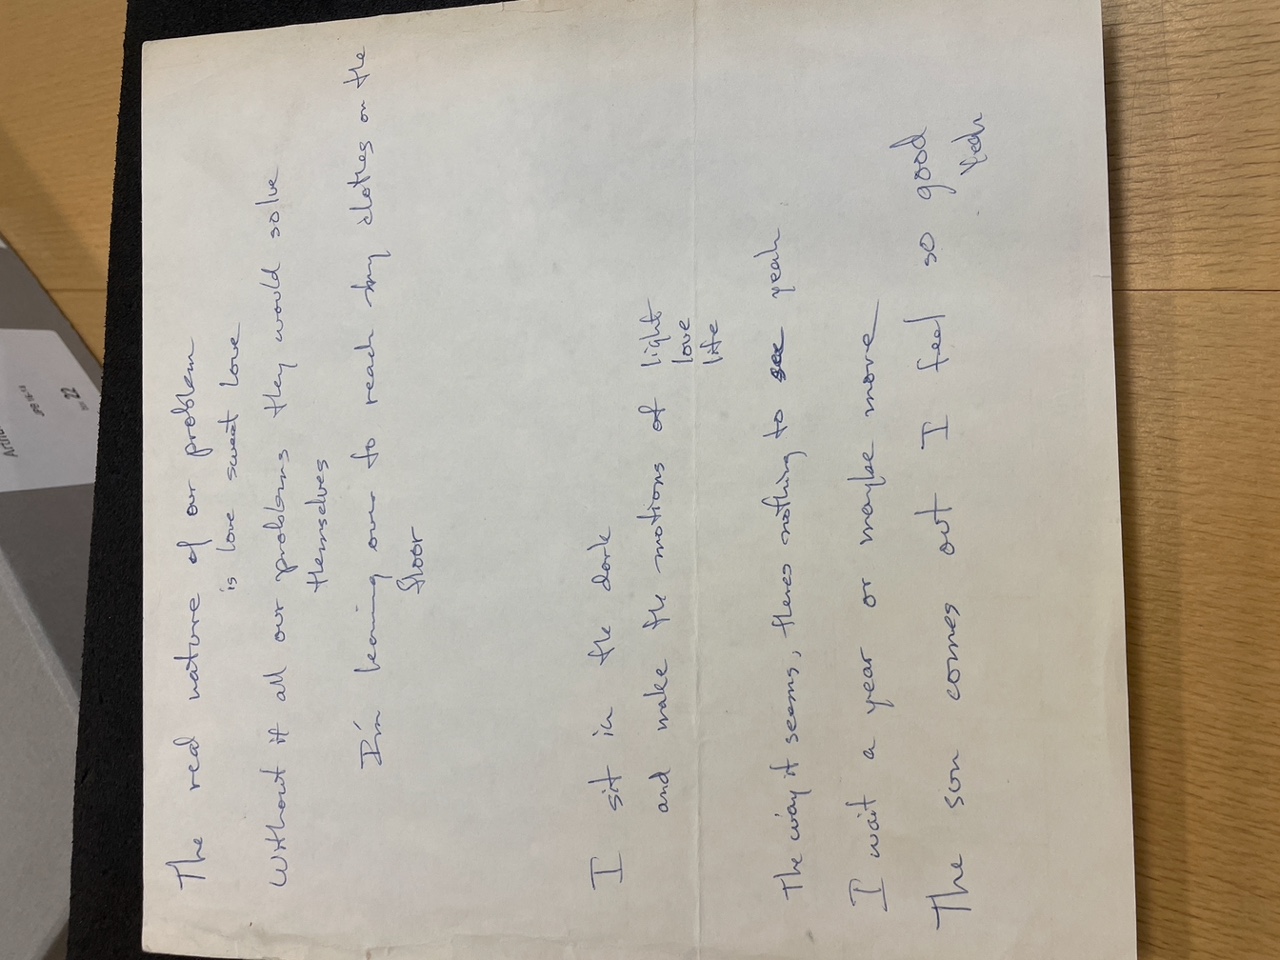 The real nature of our problem
is love sweet love
Without it all our problems they would solve
themselves
I'm leaning over to reach my clothes on the
floor
I sit in the dark
and make the motions of light
love
life
The way it seems, theres nothing to see yeah
I wait a year or maybe more
The sun comes out I feel so good
Yeah
22